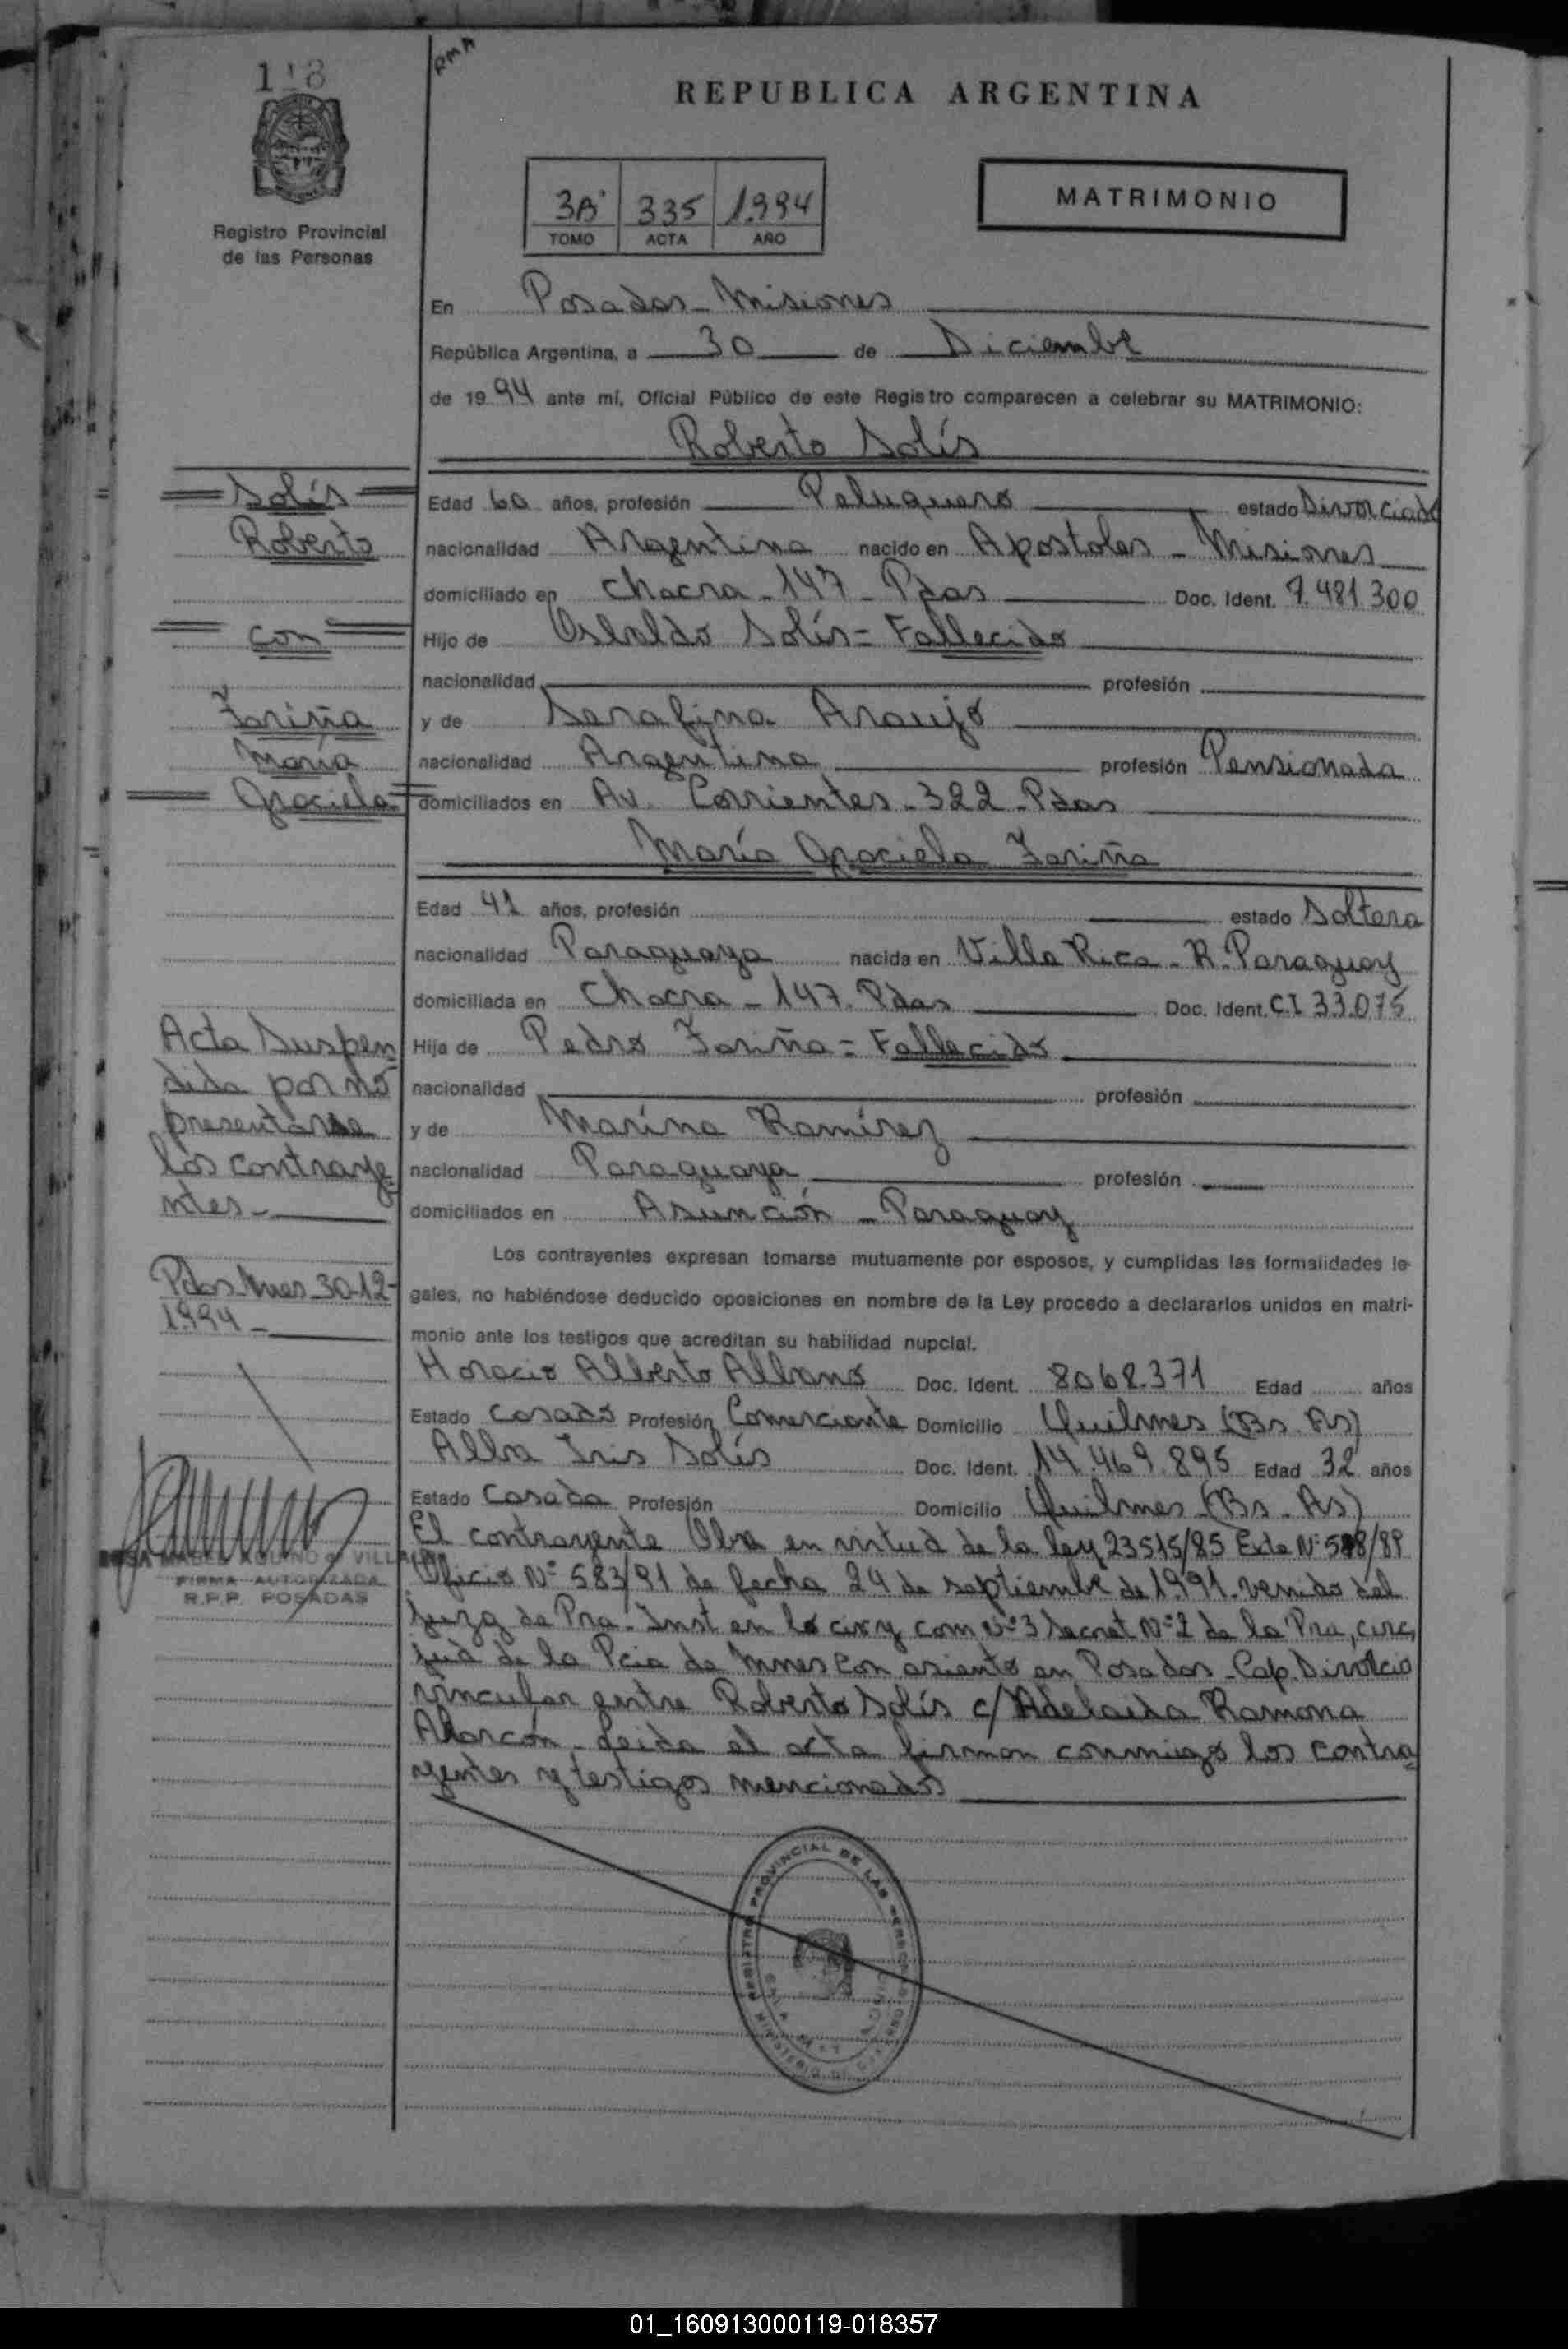 118
RMA
REPUBLICA ARGENTINA
Registro Provincial
de las Personas
3B° 335 1.994
TOMO ACTA AÑO
MATRIMONIO
En Posadas - Misiones
República Argentina, a 30 de Diciembre
de 19 94 ante mí, Oficial Público de este Registro comparecen a celebrar su MATRIMONIO:
Roberto Solís
Solís
Roberto
con
Fariña
María
Graciela
Edad 60 años, profesión Peluquero estado Divorciado
nacionalidad Argentina nacido en Apostoles - Misiones
domiciliado en Chacra - 147 - Pdas Doc. Ident. 7.481.300
Hijo de Osvaldo Solís = Fallecido
nacionalidad profesión
y de Serafina Araujo
nacionalidad Argentina profesión Pensionada
domiciliados en Av. Corrientes - 322 - Pdas
María Graciela Fariña
Edad 41 años, profesión estado Soltera
nacionalidad Paraguaya nacida en Villa Rica - R. Paraguay
domiciliada en Chacra - 147. Pdas Doc. Ident. C.I 33.075
Hija de Pedro Fariña = Fallecido
nacionalidad profesión
y de Marina Ramírez
nacionalidad Paraguaya profesión
domiciliados en Asunción - Paraguay
Acta Suspen
dida por no
presentarse
los contraye
ntes -
Pdas Mnes 30-12-
1.994 -
Los contrayentes expresan tomarse mutuamente por esposos, y cumplidas las formalidades le-
gales, no habiéndose deducido oposiciones en nombre de la Ley procedo a declararlos unidos en matri-
monio ante los testigos que acreditan su habilidad nupcial.
Horacio Alberto Albano Doc. Ident. 8068.371 Edad años
Estado Casado Profesión Comerciante Domicilio Quilmes (Bs. As)
Alba Iris Solís Doc. Ident. 14.469.895 Edad 32 años
Estado Casada Profesión Domicilio Quilmes - (Bs. As)
El contrayente Obra en virtud de la ley 23515/85 Exte N° /89
Oficio N° 583/91 de fecha 24 de septiembre de 1.991. venido del
juzg de Pra. Inst en lo civ y com N° 3 Secret N° 2 de la Pra, circ,
jud de la Pcia de Mnes con asiento en Posadas - Cap. Divorcio
vincular entre Roberto Solís c/ Adelaida Ramona
Alarcón - Leida el acta firman conmigo los contra
yentes y testigos mencionados
AQUINO de VILLALBA
FIRMA AUTORIZADA
R.P.P. POSADAS
REGISTRO PROVINCIAL DE LAS PERSONAS
MINISTERIO DE
01_160913000119-018357